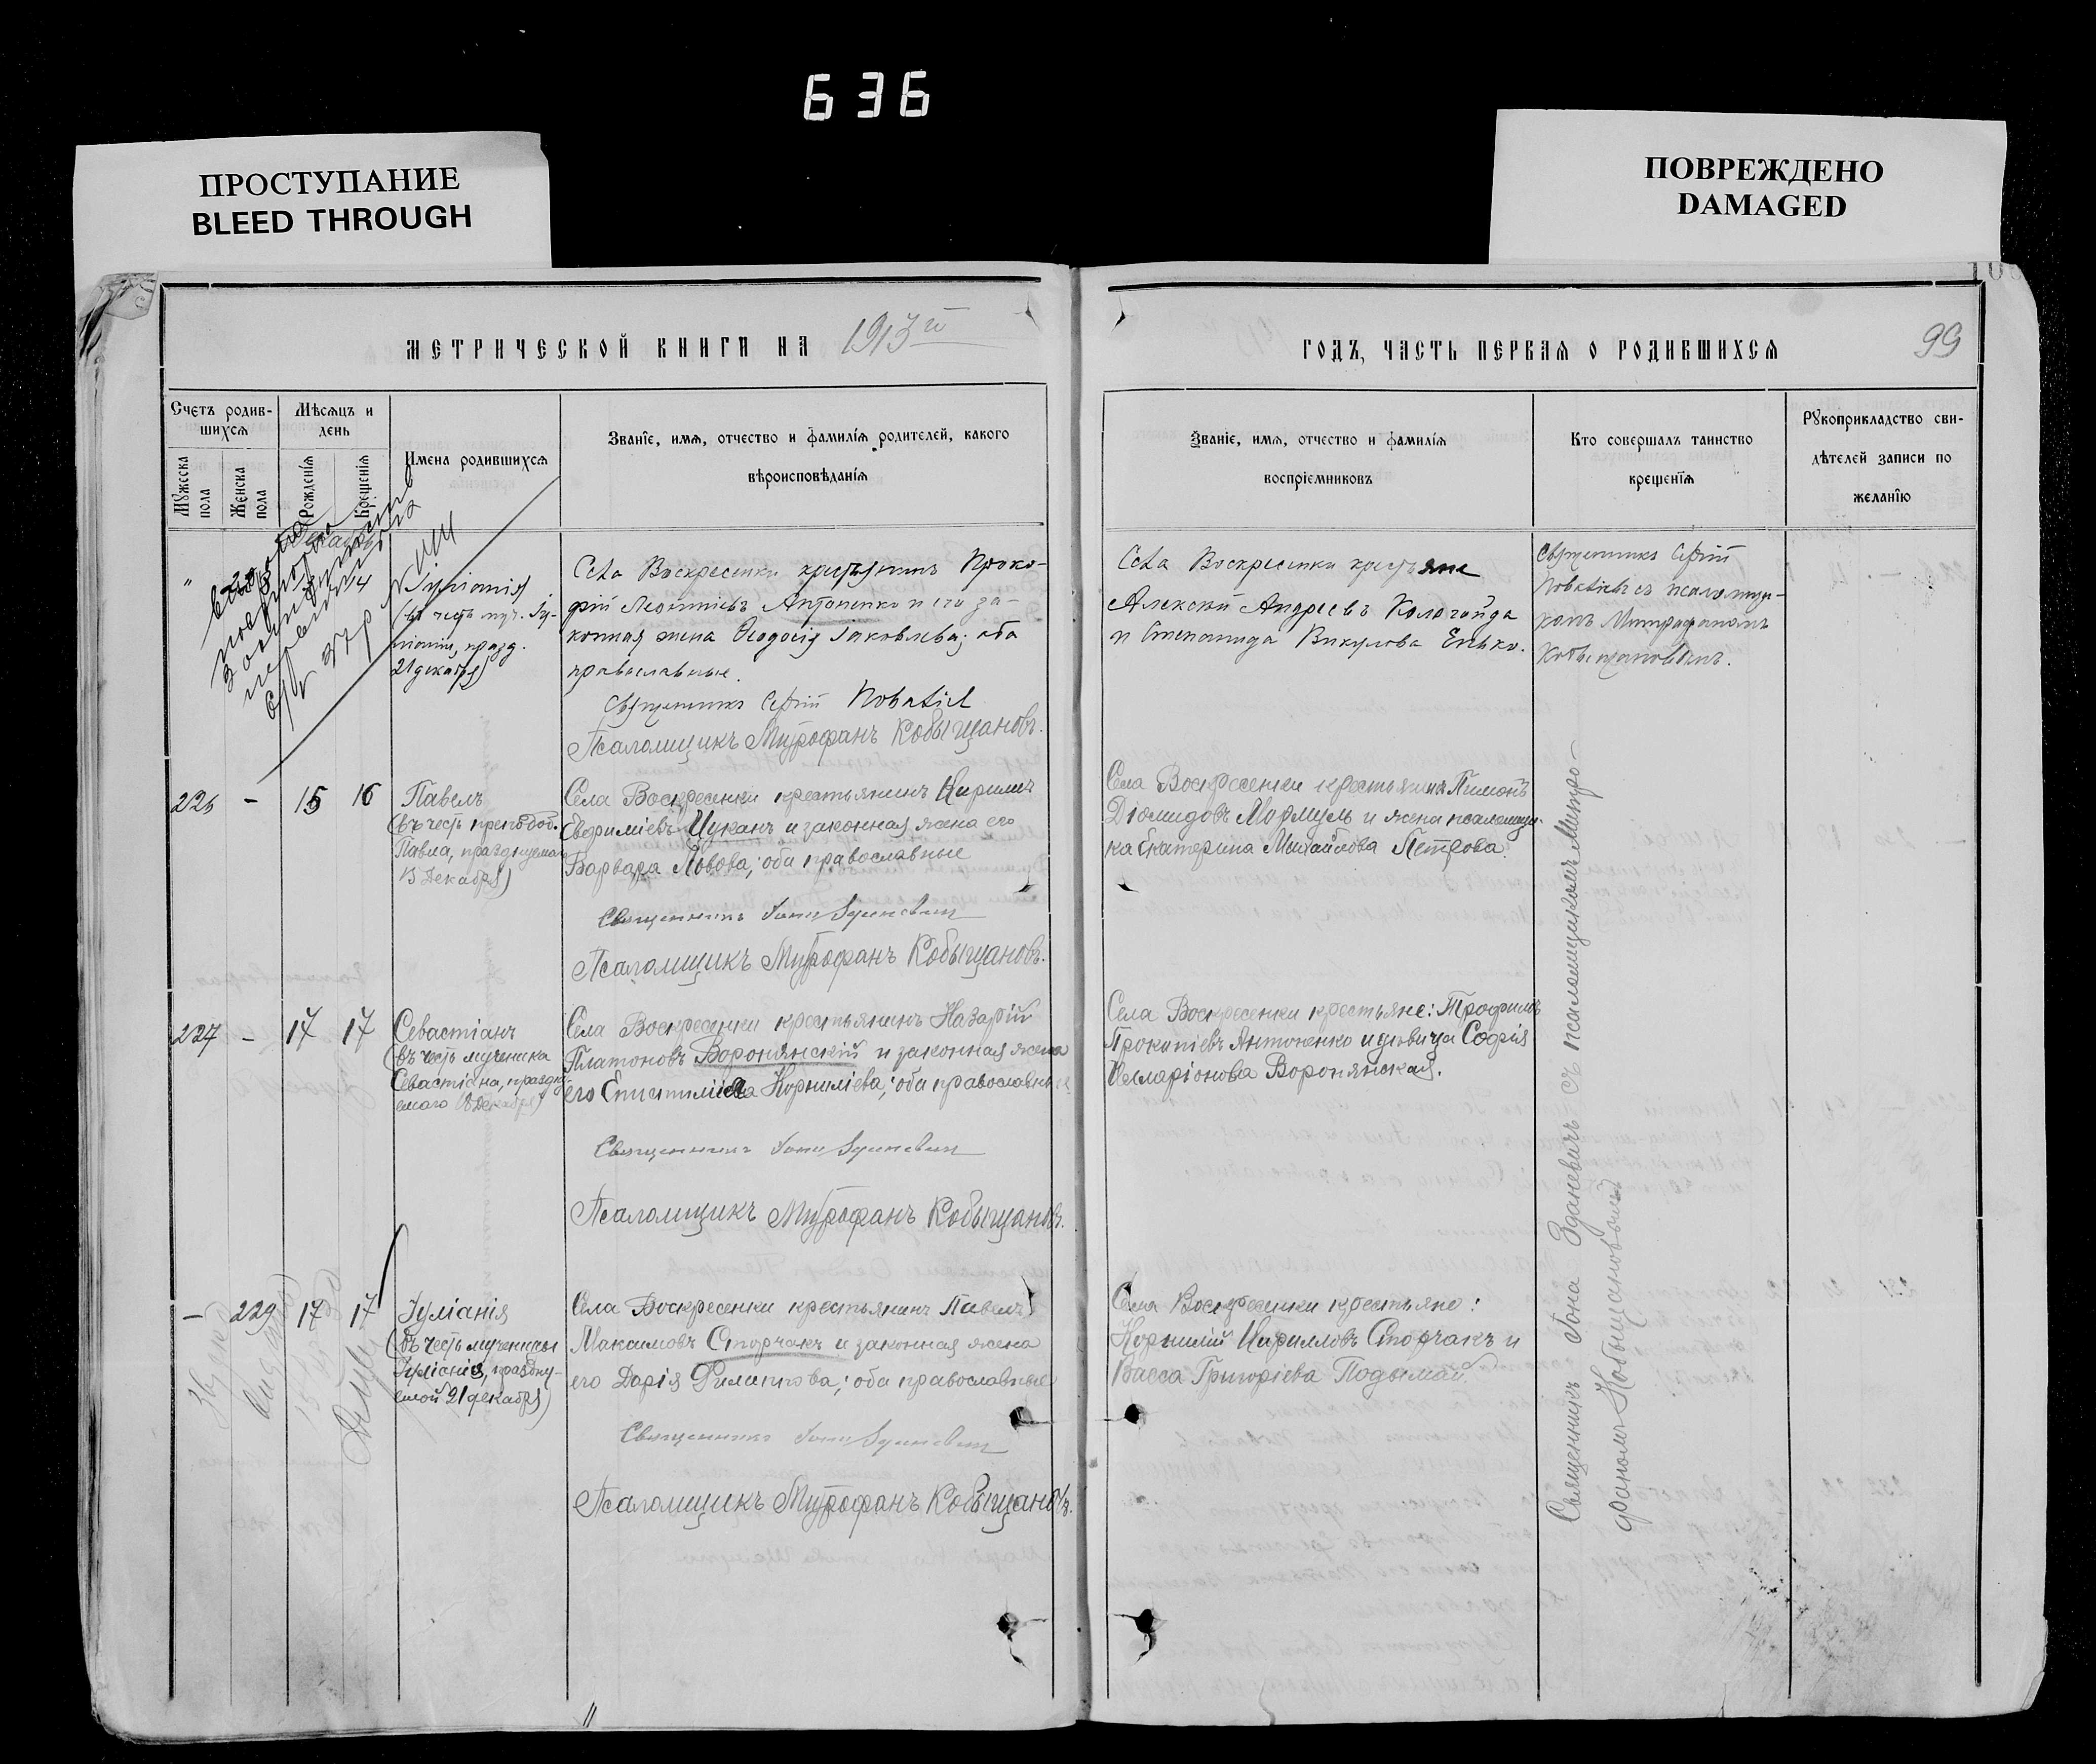 636
ПРОСТУПАНИЕ
BLEED THROUGH
ПОВРЕЖДЕНО
DAMAGED
МЕТРИЧЕСКОЙ КНИГИ НА 1913й
Счетъ родив-
шихся
Мѣсяцъ и
день
Мужеска
пола
Женска
пола
Рожденія
Крещенія
Имена родившихся
Званіе, имя, отчество и фамилія родителей, какого
вѣроисповѣданія
14
(въ честь муч. Іу-
ліаніи, празд.
21 декабря)
Села Воскресенки крестьянинъ Проко-
пій Леонтіевъ Антоненко и его за-
конная жена Ѳеодосія Іаковлева; оба
православные.
Священникъ Сергій
Псаломщикъ Митрофанъ Кобыщановъ.
226 - 15 16 Павелъ
(въ честь преподоб.
Павла, празднуемаго
15 Декабря)
Села Воскресенки крестьянинъ Кириллъ
Евфиміевъ Цуканъ и законная жена его
Варвара Львова; оба православные
Священникъ Іона Зданевичъ
Псаломщикъ Митрофанъ Кобыщановъ.
227 - 17 17 Севастіанъ
(въ честь мученика
Севастіана, праздну-
емаго 18 Декабря)
Села Воскресенки крестьянинъ Назарій
Платоновъ Воронянскій и законная жена
его Епистимія Корниліева; оба православные
Священникъ Іона Зданевичъ
Псаломщикъ Митрофанъ Кобыщановъ.
- 229 17 17 Іуліанія
(въ честь мученицы
Іуліаніи, праздну-
емой 21 декабря)
Села Воскресенки крестьянинъ Павелъ
Максимовъ Сторчакъ и законная жена
его Дарія Филиппова; оба православные
Священникъ Іона Зданевичъ
Псаломщикъ Митрофанъ Кобыщановъ.
ГОДЪ, ЧАСТЬ ПЕРВАЯ О РОДИВШИХСЯ
99
Званіе, имя, отчество и фамилія
воспріемниковъ
Кто совершалъ таинство
крещенія
Рукоприкладство сви-
дѣтелей записи по
желанію
Села Воскресенки крестьяне
Алексій Андреевъ Кологойда
и Степанида Викулова Енько.
Священникъ Сергій
съ псаломщи-
комъ Митрофаномъ
Кобыщановымъ.
Села Воскресенки крестьянинъ Пимонъ
Діомидовъ Мормуль и жена псаломщи-
ка Екатерина Михайлова Петрова.
Села Воскресенки крестьяне: Трофимъ
Прокопіевъ Антоненко и дѣвица Софія
Илларіонова Воронянская.
Села Воскресенки крестьяне:
Корнилій Кирилловъ Сторчакъ и
Васса Григоріева Подымай.
Священникъ Іона Зданевичъ съ псаломщикомъ Митро-
фаномъ Кобыщановымъ